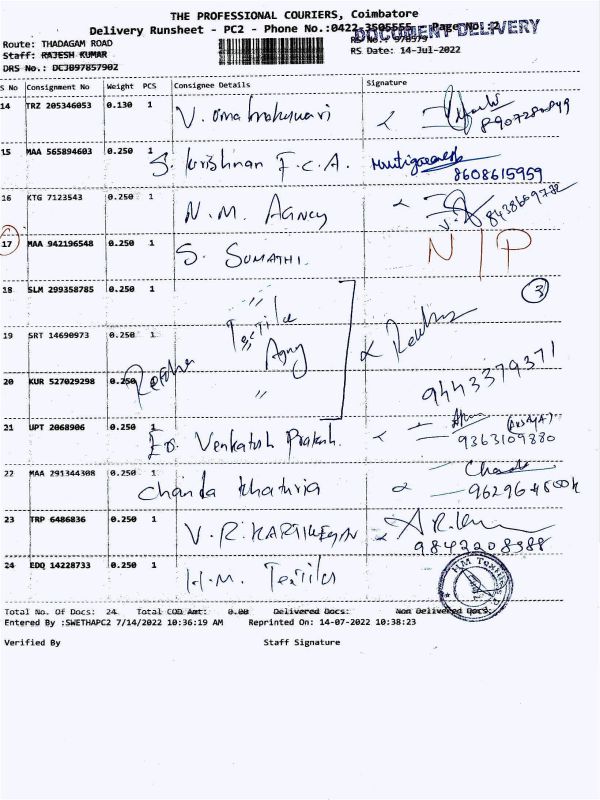 THE PROFESSIONAL COURIERS, Coimbatore
Delivery Runsheet - PC2 - Phone No.:0422-3505555 Page No: 2
DOCUMENT DELIVERY
Route: THADAGAM ROAD RS No.: 978579
Staff: RAJESH KUMAR RS Date: 14-Jul-2022
DRS No.: DCJ097857902
S No Consignment No Weight PCS Consignee Details Signature
14 TRZ 205346053 0.130 1 V. Uma
15 MAA 565894603 0.250 1 S. Krishnan F.C.A. 8608615959
16 KTG 7123543 0.250 1 N.M. Agncy
17 MAA 942196548 0.250 1 S. SUMATHI. N/P
18 SLM 299358785 0.250 1 3
19 SRT 14690973 0.250 1 Textile Agncy
20 KUR 527029298 0.250 9443379371
21 UPT 2068906 0.250 1 Venkatesh Prakash. 9363109880
22 MAA 291344308 0.250 1 Chanda Khaturia
23 TRP 6486836 0.250 1 V.R. KARTIKEYAN 9842208388
24 EDQ 14228733 0.250 1 H.M. Textiles HM Textiles
Total No. Of Docs: 24 Total COD Amt: 0.00 Delivered Docs: Non Delivered Docs:
Entered By :SWETHAPC2 7/14/2022 10:36:19 AM Reprinted On: 14-07-2022 10:38:23
Verified By Staff Signature